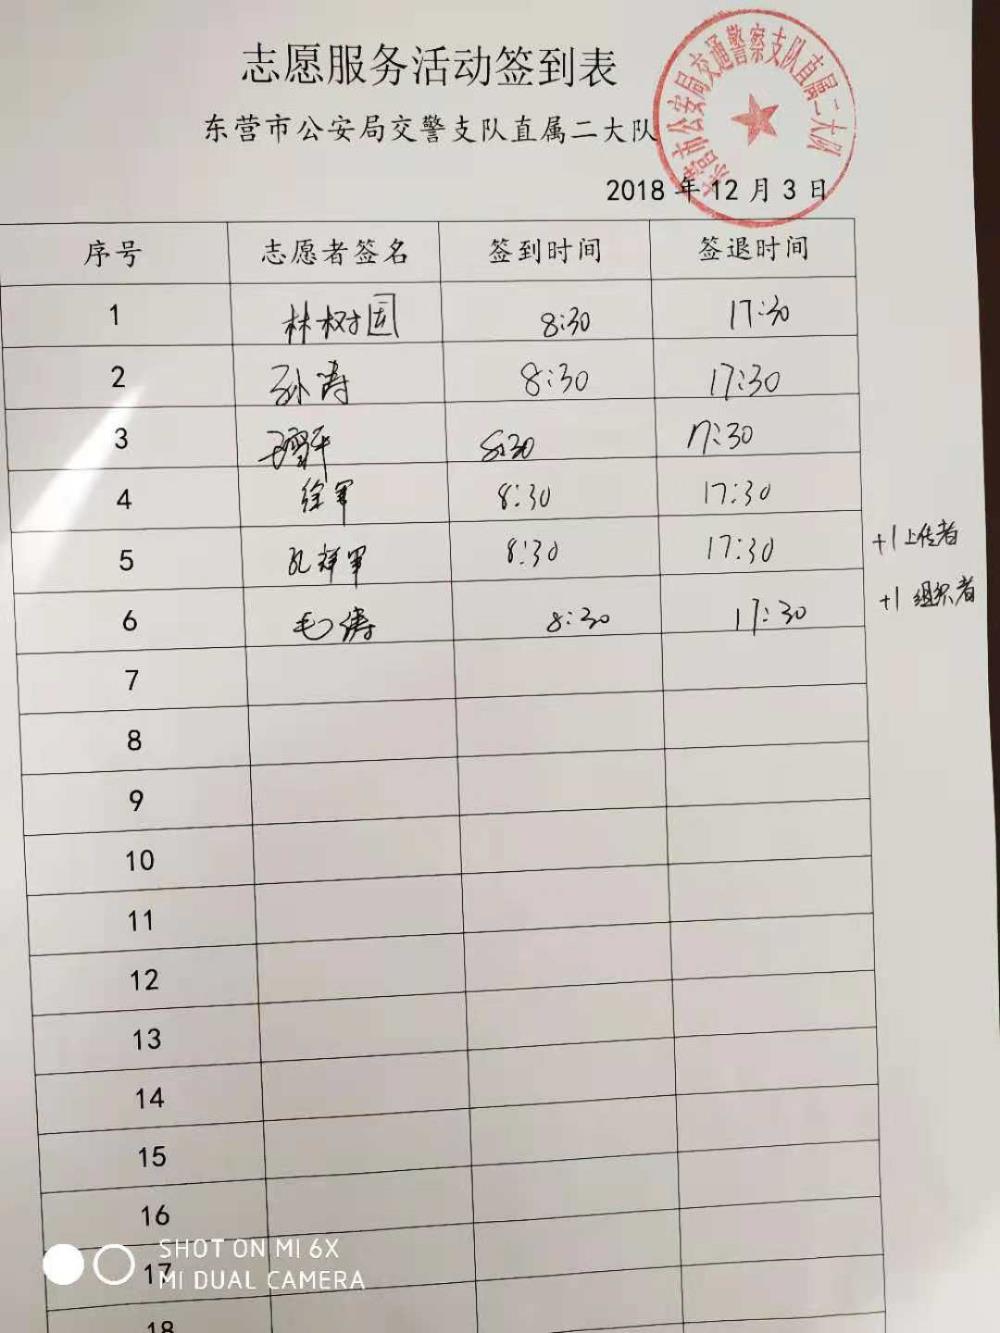 志愿服务活动签到表
东营市公安局交警支队直属二大队
东营市公安局交通警察支队直属二大队
2018 年 12 月 3 日
序号 志愿者签名 签到时间 签退时间
1 林树国 8:30 17:30
2 孙涛 8:30 17:30
3 8:30 17:30
4 徐军 8:30 17:30
5 孔祥军 8:30 17:30 +1上传者
6 毛涛 8:30 17:30 +1 组织者
7
8
9
10
11
12
13
14
15
16
17
18
SHOT ON MI 6X
MI DUAL CAMERA